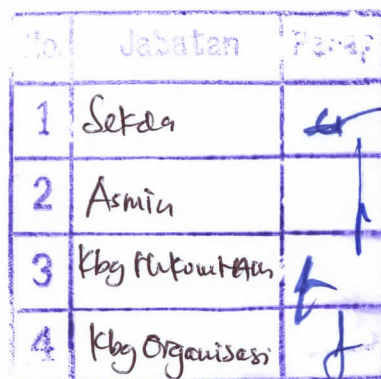 No. Jabatan Paraf
1 Sekda
2 Asmin
3 Kbg Hukum HAM
4 Kbg Organisasi